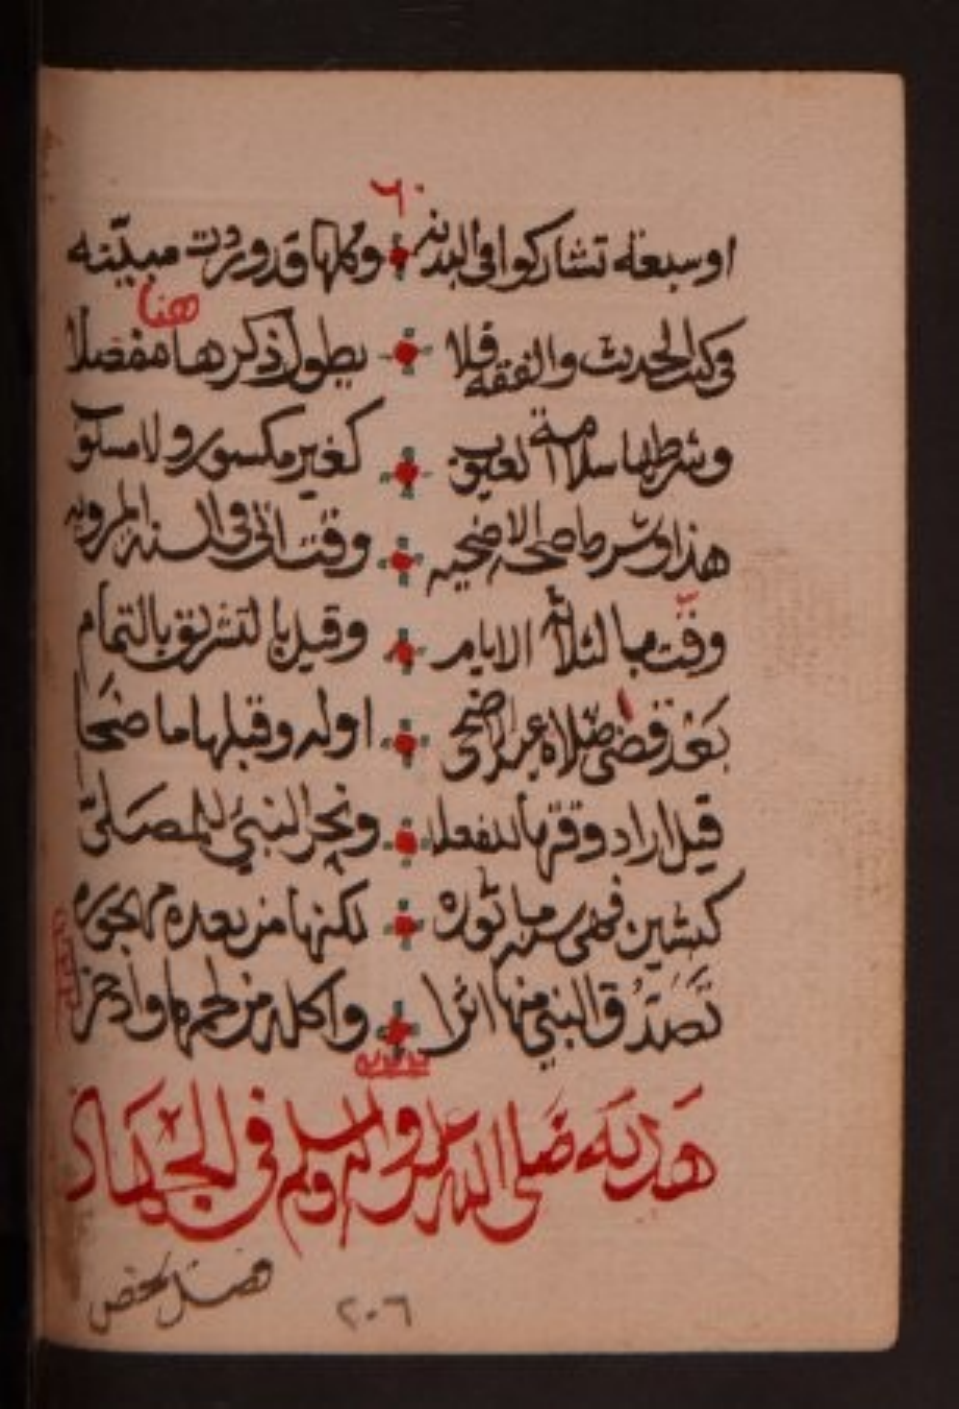 ٦٠
اوسبعة تشاركوا في البدنه وكلها قد وردت مبيّنه
هنا
في كتب الحديث والفقه فلا يطول ذكرها مفصلا
وشرطها سلامة العيوب كغير مكسور ولا
هذا وشرط صحة الاضحيه وقت اتى في السنه المرويه
وقت بها لثلاثة الايام وقيل بالتشريق بالتمام
بَعْدَ قضى صلاة عيد الاضحى اوله وقبلها ما ضحا
قيل اراد وقتها لتفعلا ونحر النبي المصلى
كبشين فهي سنه ماثوره لكنها من بعده مهجوره
تَصَدَّق النبي منها اثرا واكله من لحمها وادخرا
هَديه صَلى الله عليه واله وسلم في الجهاد
فصل يختص
٢٠٦